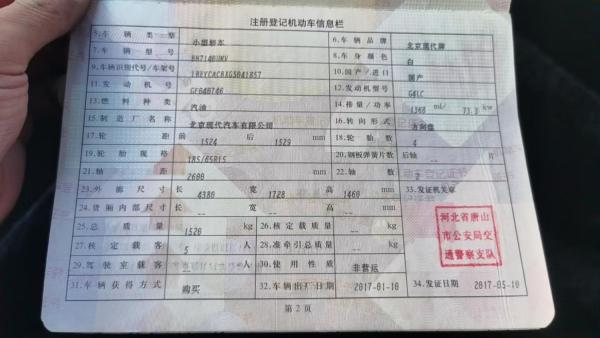 注册登记机动车信息栏
5.车辆类型 小型轿车 6.车辆品牌 北京现代牌
7.车辆型号 BH7140UMV 8.车身颜色 白
9.车辆识别代号/车架号 LBEYCACBXGS041857 10.国产/进口 国产
11.发动机号 GF640746 12.发动机型号 G4LC
13.燃料种类 汽油 14.排量/功率 1368 ml/ 73.3 kw
15.制造厂名称 北京现代汽车有限公司 16.转向形式 方向盘
17.轮距 前 1524 后 1529 mm 18.轮胎数 4
19.轮胎规格 185/65R15 20.钢板弹簧片数 后轴 -- 片
21.轴距 2600 mm 22.轴数 2
23.外廓尺寸 长 4380 宽 1728 高 1460 mm 33.发证机关章
24.货厢内部尺寸 长 -- 宽 -- 高 -- mm
25.总质量 1520 kg 26.核定载质量 -- kg
27.核定载客 5 人 28.准牵引总质量 -- kg
29.驾驶室载客 -- 人 30.使用性质 非营运
河北省唐山
市公安局交
通警察支队
31.车辆获得方式 购买 32.车辆出厂日期 2017-01-10 34.发证日期 2017-05-10
第2页